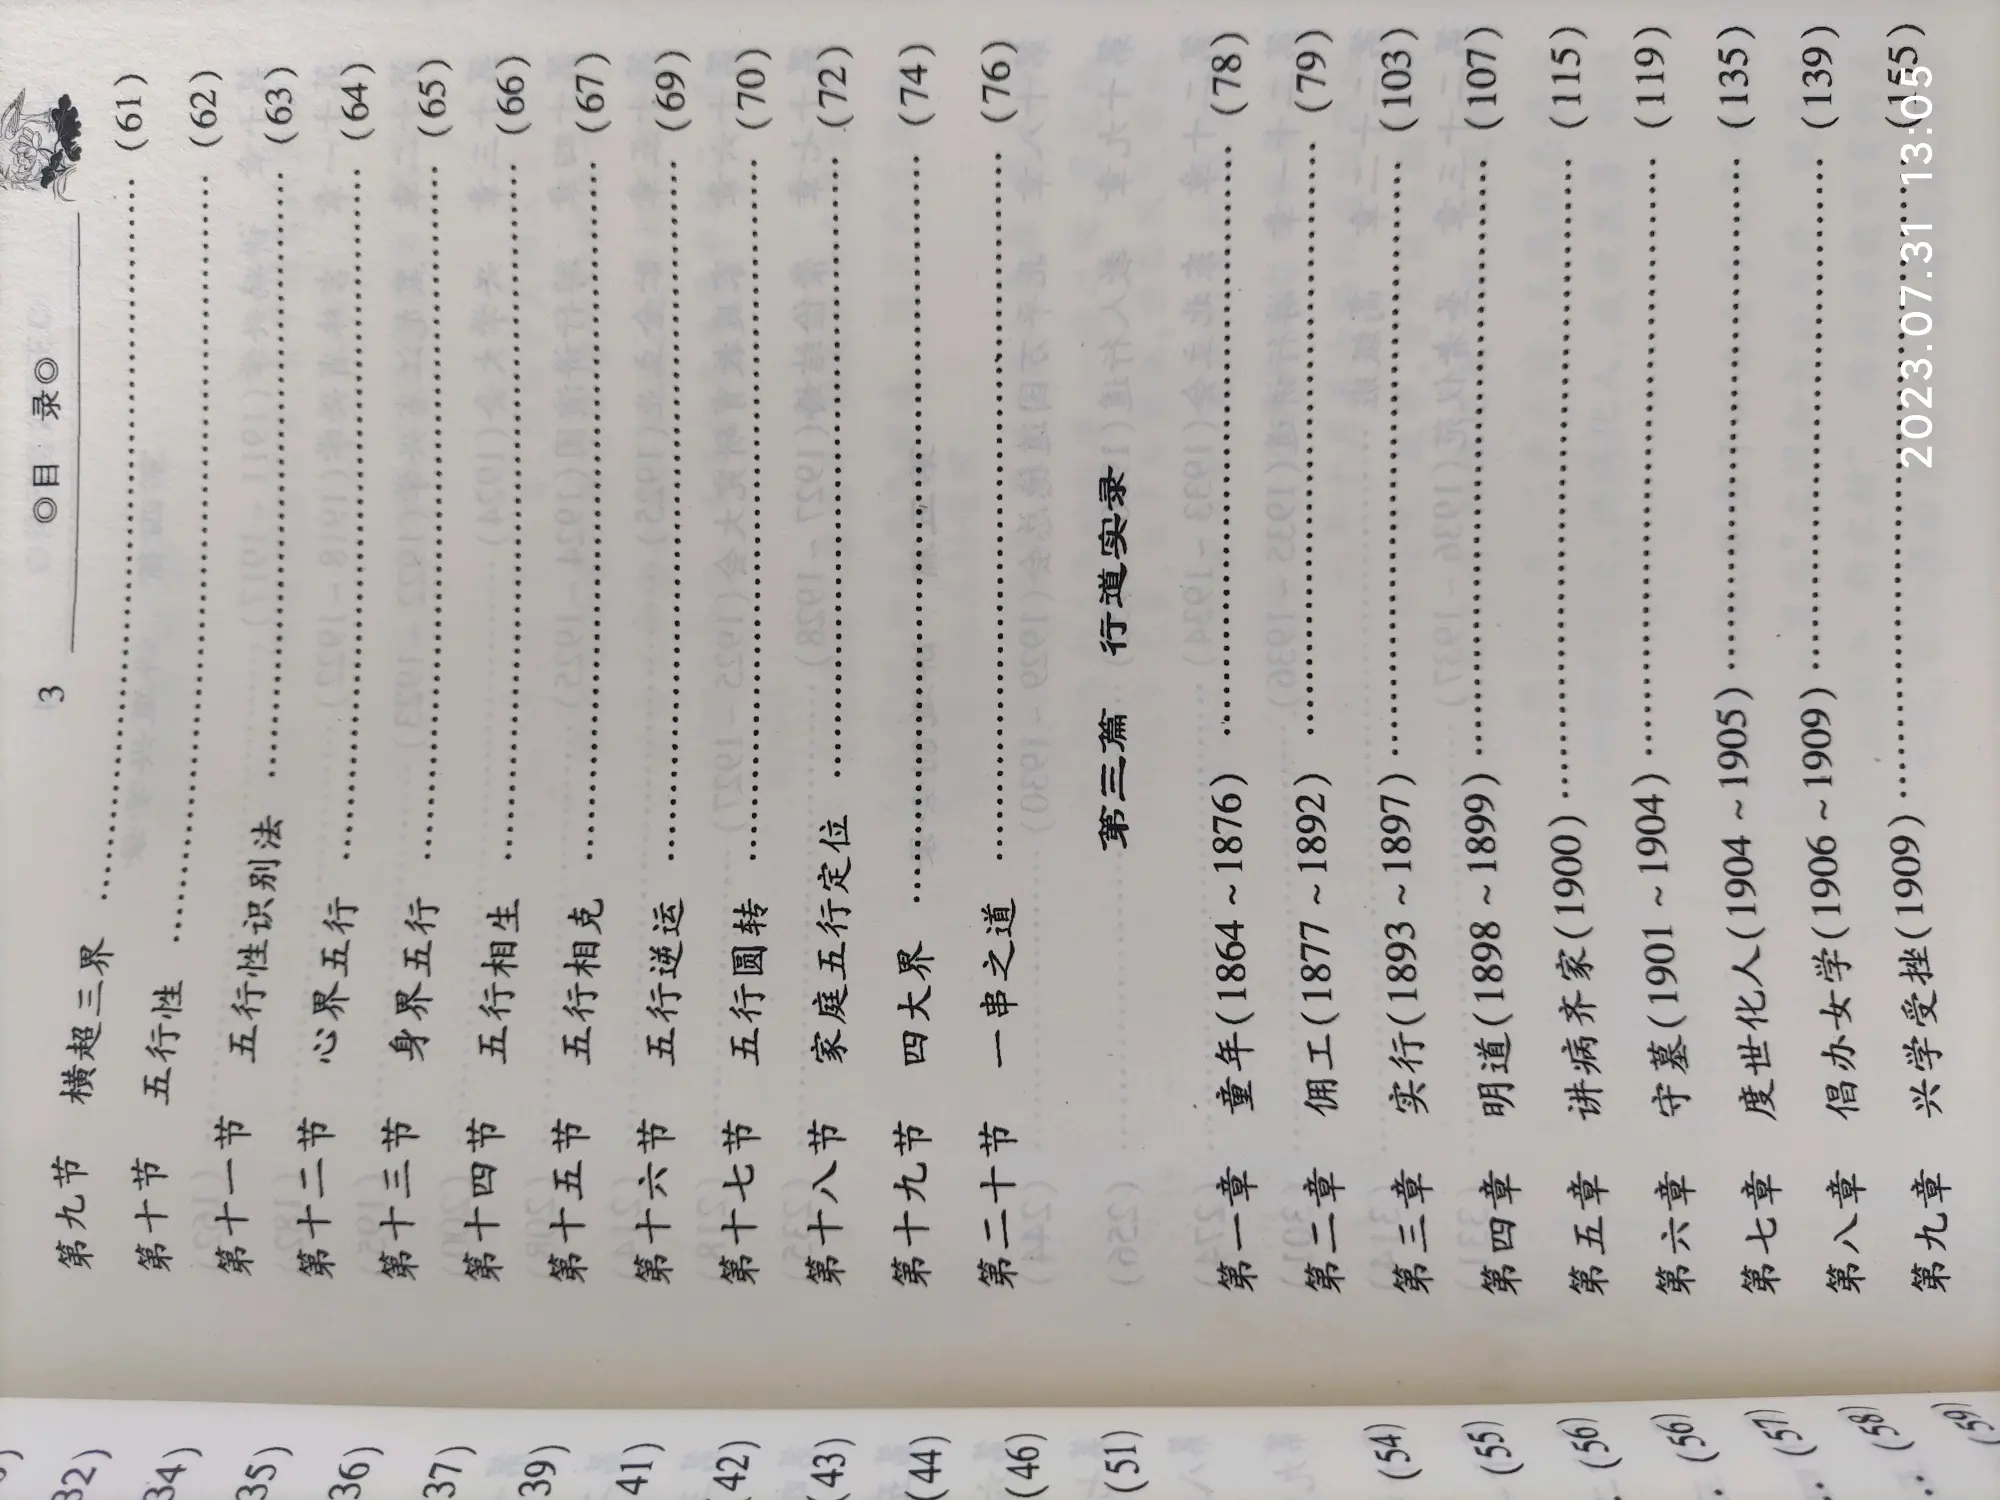 3 ◎目 录◎
第九节 横超三界 (61)
第十节 五行性 (62)
第十一节 五行性识别法 (63)
第十二节 心界五行 (64)
第十三节 身界五行 (65)
第十四节 五行相生 (66)
第十五节 五行相克 (67)
第十六节 五行逆运 (69)
第十七节 五行圆转 (70)
第十八节 家庭五行定位 (72)
第十九节 四大界 (74)
第二十节 一串之道 (76)
第三篇 行道实录
第一章 童年(1864~1876) (78)
第二章 佣工(1877~1892) (79)
第三章 实行(1893~1897) (103)
第四章 明道(1898~1899) (107)
第五章 讲病齐家(1900) (115)
第六章 守墓(1901~1904) (119)
第七章 度世化人(1904~1905) (135)
第八章 倡办女学(1906~1909) (139)
第九章 兴学受挫(1909) (155)
2023.07.31 13:05
32)
34)
35)
36)
37)
39)
41)
(42)
(43)
(44)
(46)
(51)
(54)
(55)
(56)
(56)
(57)
(58)
(59)